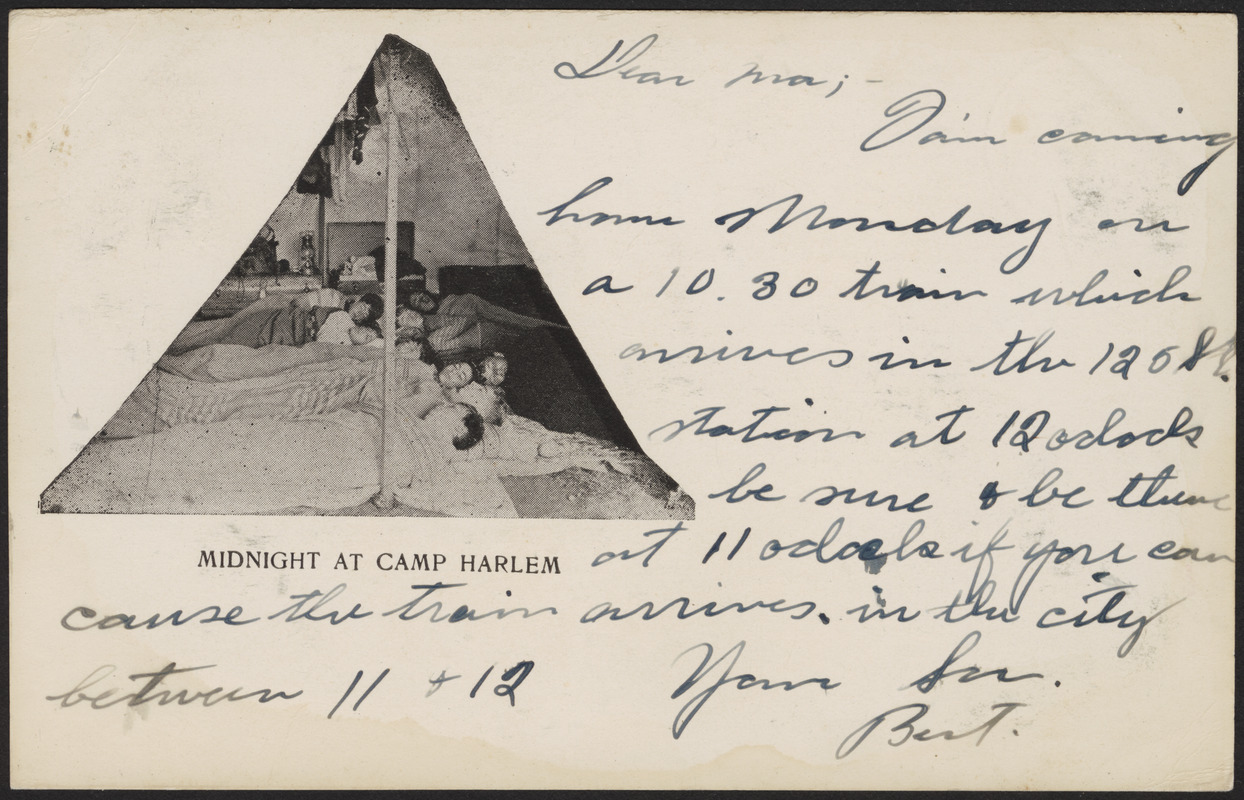 Dear ma;-
I'am coming
home Monday on
a 10.30 train which
arrives in the 125 St.
station at 12 oclock
be sure & be there
at 11 oclock if you can
cause the train arrives in the city
between 11 & 12
Your Son.
Bert.
MIDNIGHT AT CAMP HARLEM